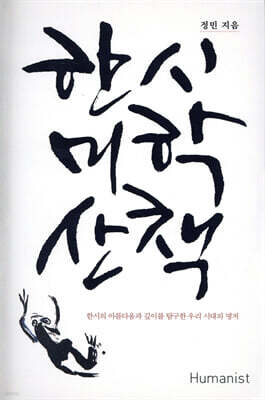 정민 지음
한시
미학
산책
한시의 아름다움과 깊이를 탐구한 우리 시대의 명저
Humanist